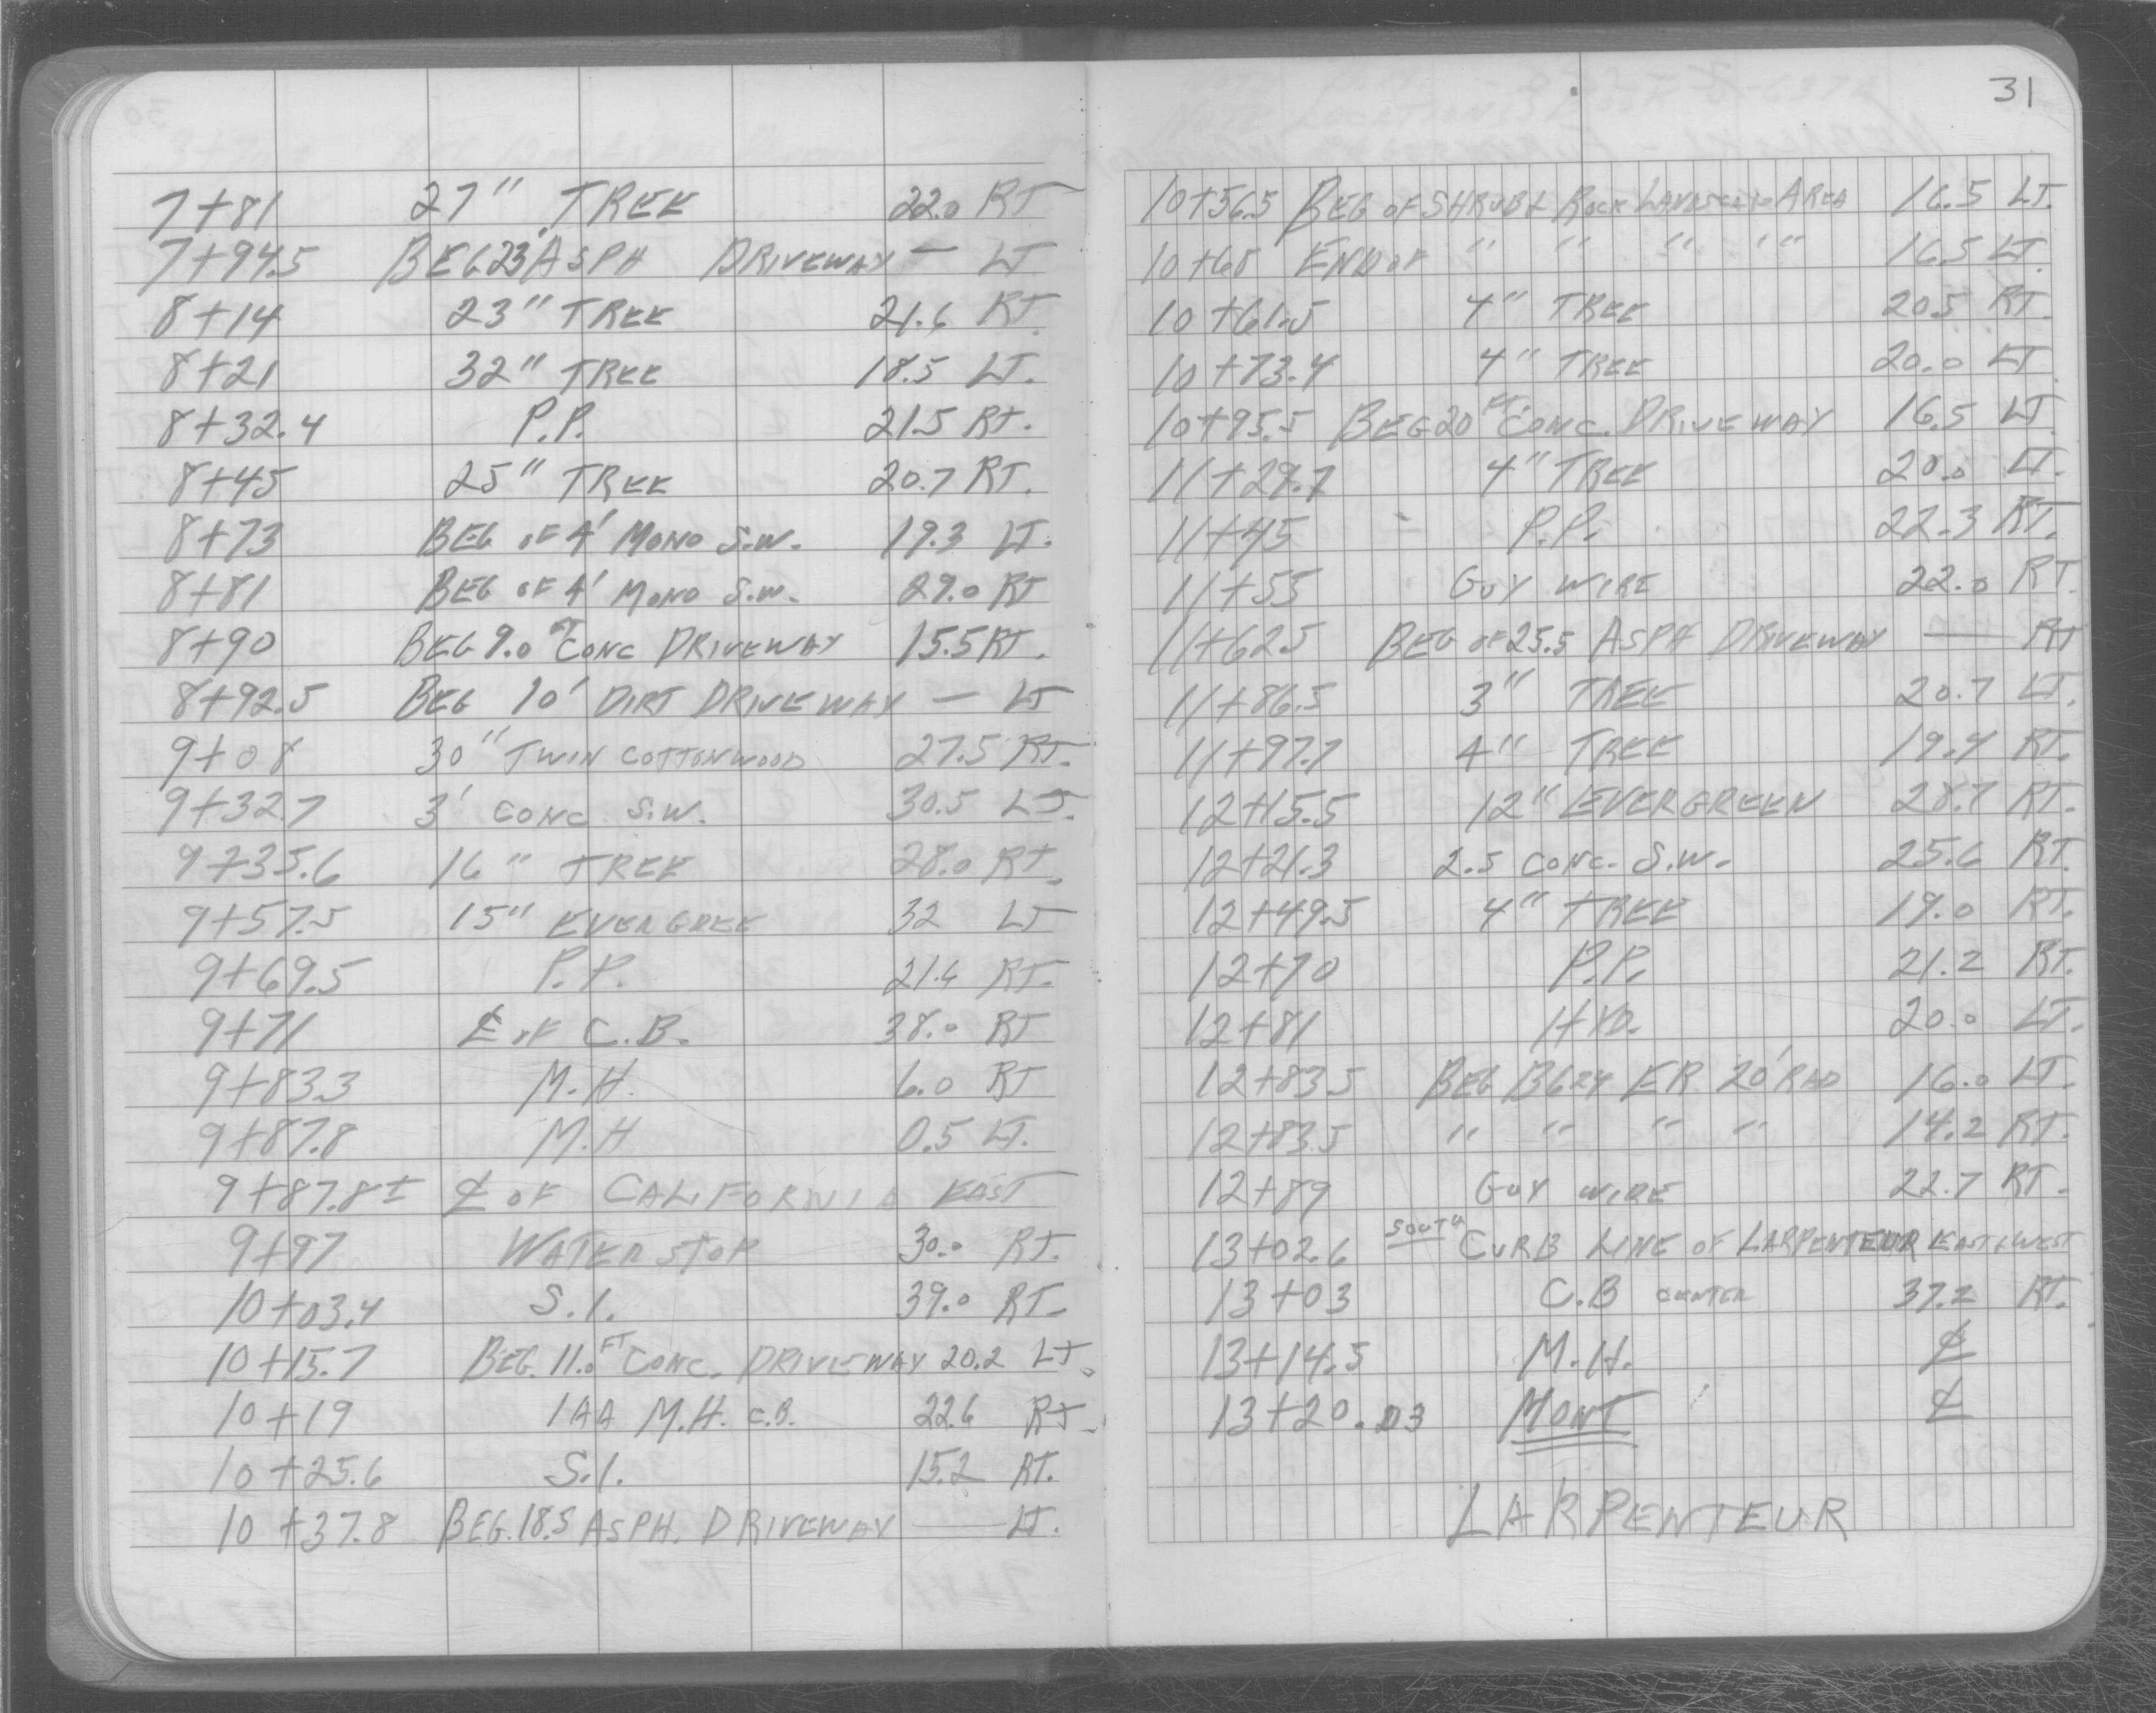 31
7+81 27" TREE 22.0 RT
7+94.5 BEG 23' ASPH DRIVEWAY — LT
8+14 23" TREE 21.6 RT.
8+21 32" TREE 18.5 LT.
8+32.4 P.P. 21.5 RT.
8+45 25" TREE 20.7 RT.
8+73 BEG. OF 4' MONO S.W. 19.3 LT.
8+81 BEG OF 4' MONO S.W. 29.0 RT
8+90 BEG 9.0 FT CONC DRIVEWAY 15.5 RT.
8+92.5 BEG 10' DIRT DRIVEWAY — LT
9+08 30" TWIN COTTONWOOD 27.5 RT.
9+32.7 3' CONC. S.W. 30.5 LT.
9+35.6 16" TREE 28.0 RT.
9+57.5 15" EVERGREE 32 LT
9+69.5 P.P. 21.4 RT.
9+71 ℄ OF C.B. 38.0 RT
9+83.3 M.H. 6.0 RT
9+87.8 M.H 0.5 LT.
9+87.8± ℄ OF CALIFORNIA EAST
9+97 WATER STOP 30.0 RT.
10+03.4 S.I. 39.0 RT.
10+15.7 BEG. 11.0 FT CONC. DRIVEWAY 20.2 LT.
10+19 1AA M.H. C.B. 22.6 RT.
10+25.6 S.I. 15.2 RT.
10+37.8 BEG. 18.5 ASPH. DRIVEWAY — LT.
10+56.5 BEG OF SHRUB & ROCK AREA 16.5 LT.
10+68 END OF " " " " " 16.5 LT.
10+61.5 4" TREE 20.5 RT.
10+73.4 4" TREE 20.0 LT.
10+95.5 BEG 20 FT. CONC. DRIVEWAY 16.5 LT.
11+29.7 4" TREE 20.0 LT.
11+45 P.P. 22.3 RT.
11+55 GUY WIRE 22.0 RT.
11+62.5 BEG OF 25.5 ASPH DRIVEWAY — RT
11+86.5 3" TREE 20.7 LT.
11+97.7 4" TREE 19.4 RT.
12+15.5 12" EVERGREEN 28.7 RT.
12+21.3 2.5 CONC. S.W. 25.6 RT.
12+49.5 4" TREE 19.0 RT.
12+70 P.P. 21.2 RT.
12+81 HYD. 20.0 LT.
12+83.5 BEG B624 ER 20' RAD 16.0 LT.
12+83.5 " " " " 14.2 RT.
12+89 GUY WIRE 22.7 RT.
13+02.6 SOUTH CURB LINE OF LARPENTEUR EAST & WEST
13+03 C.B CENTER 37.2 RT.
13+14.5 M.H. ℄
13+20.03 MONT ℄
LARPENTEUR